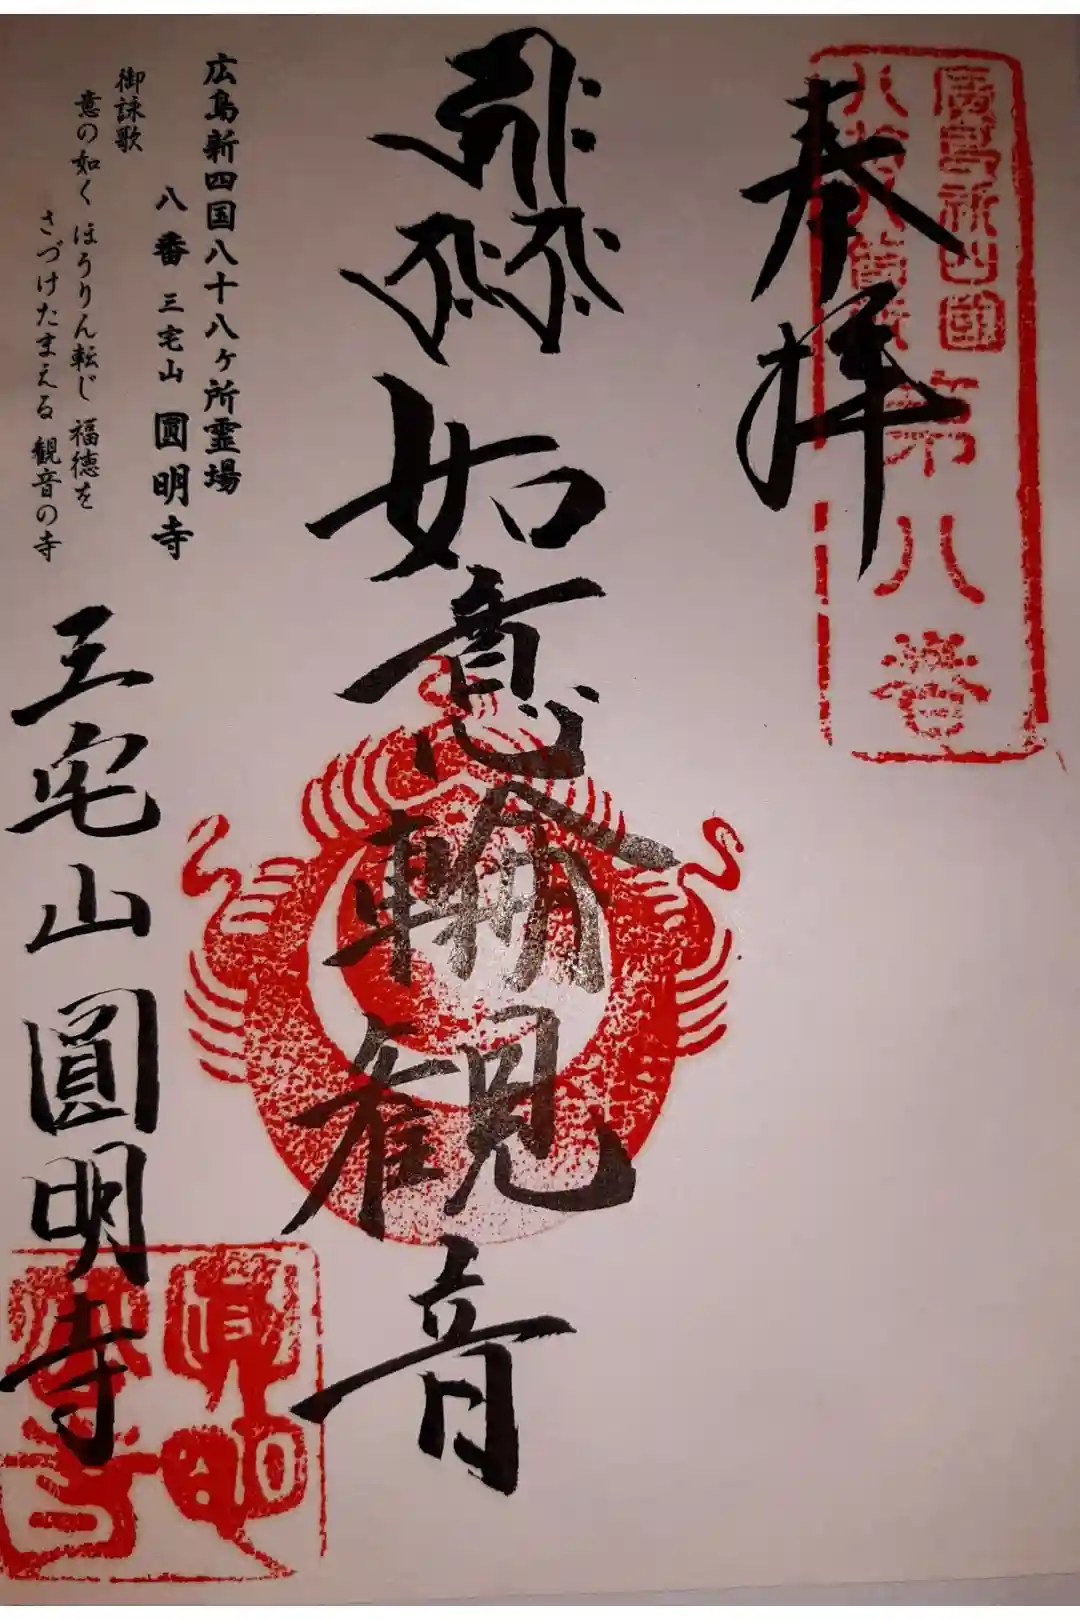 奉拝
廣島新四國
八拾八箇所
第八番
如意輪観音
広島新四国八十八ヶ所霊場
八番 三宅山 圓明寺
御詠歌
意の如く ほうりん転じ 福徳を
さづけたまえる 観音の寺
三宅山 圓明寺